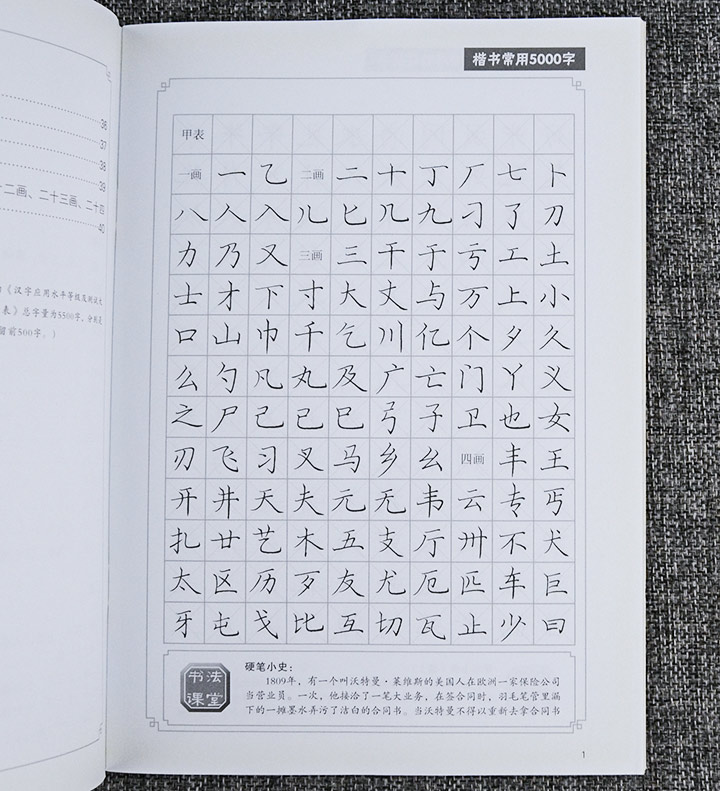 36
37
38
39
十二画、二十三画、二十四
40
《汉字应用水平等级及测试大
表》总字量为5500字，分别是
留前500字。）
楷书常用5000字
甲表
一画 一 乙 二画 二 十 丁 厂 七 卜
八 人 入 儿 匕 几 九 刁 了 刀
力 乃 又 三画 三 干 于 亏 工 土
士 才 下 寸 大 丈 与 万 上 小
口 山 巾 千 乞 川 亿 个 夕 久
么 勺 凡 丸 及 广 亡 门 丫 义
之 尸 己 已 巳 弓 子 卫 也 女
刃 飞 习 叉 马 乡 幺 四画 丰 王
开 井 天 夫 元 无 韦 云 专 丐
扎 廿 艺 木 五 支 厅 卅 不 犬
太 区 历 歹 友 尤 厄 匹 车 巨
牙 屯 戈 比 互 切 瓦 止 少 曰
书法
课堂
硬笔小史：
1809年，有一个叫沃特曼·莱维斯的美国人在欧洲一家保险公司
当营业员。一次，他接洽了一笔大业务，在签合同时，羽毛笔管里漏
下的一摊墨水弄污了洁白的合同书。当沃特曼不得以重新去拿合同书
1